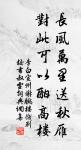 長風萬里送秋雁
對此可以酣高樓
李白宣州謝朓樓餞別
校書叔雲詞典網集